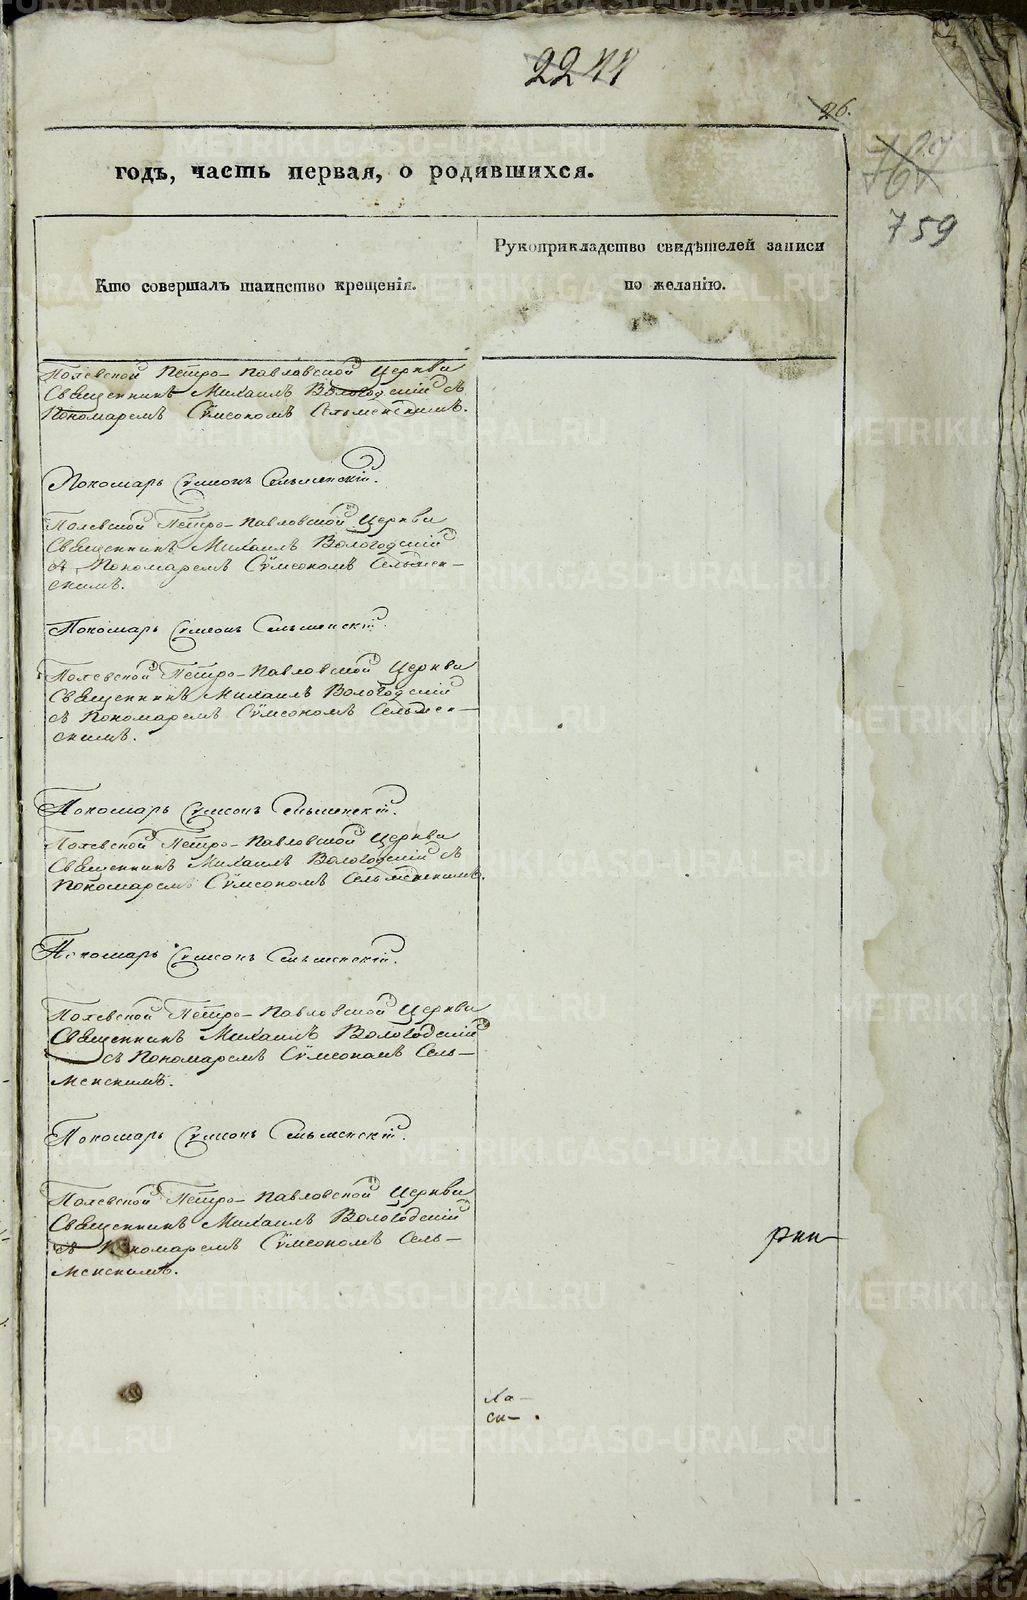 2244
26.
годъ, часть первая, о родившихся.
759
Кто совершалъ таинство крещенія.
Рукоприкладство свидѣтелей записи
по желанію.
Полевской Петро-Павловской Церкви
Священникъ Михаилъ Вологодскій съ
Пономаремъ Сѵмеономъ Сельменскимъ.
Пономарь Сѵмеонъ Сельменскій.
Полевской Петро-Павловской Церкви
Священникъ Михаилъ Вологодскій
съ Пономаремъ Сѵмеономъ Сельмен-
скимъ.
Пономарь Сѵмеонъ Сельменскій.
Полевской Петро-Павловской Церкви
Священникъ Михаилъ Вологодскій
съ Пономаремъ Сѵмеономъ Сельмен-
скимъ.
Пономарь Сѵмеонъ Сельменскій.
Полевской Петро-Павловской Церкви
Священникъ Михаилъ Вологодскій съ
Пономаремъ Сѵмеономъ Сельменскимъ.
Пономарь Сѵмеонъ Сельменскій.
Полевской Петро-Павловской Церкви
Священникъ Михаилъ Вологодскій
съ Пономаремъ Сѵмеономъ Сель-
менскимъ.
Пономарь Сѵмеонъ Сельменскій.
Полевской Петро-Павловской Церкви
Священникъ Михаилъ Вологодскій
съ Пономаремъ Сѵмеономъ Сель-
менскимъ.
METRIKI.GASO-URAL.RU